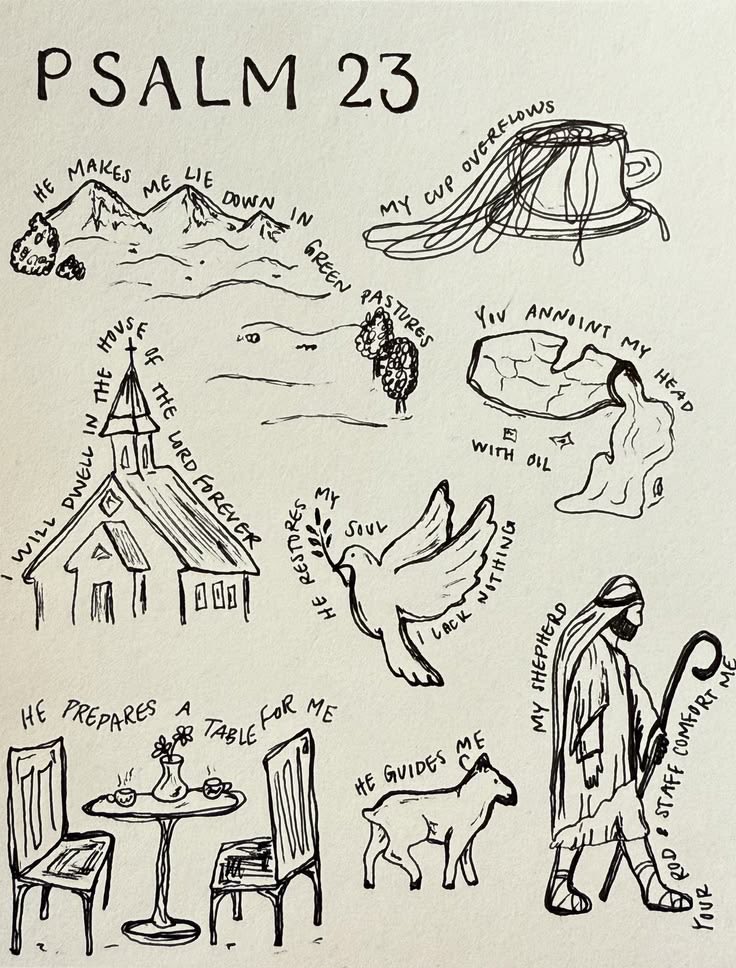 PSALM 23
MY CUP OVERFLOWS
HE MAKES ME LIE DOWN IN GREEN PASTURES
YOU ANNOINT MY HEAD
WITH OIL
I WILL DWELL IN THE HOUSE OF THE LORD FOREVER
HE RESTORES MY SOUL
I LACK NOTHING
MY SHEPHERD
YOUR ROD & STAFF COMFORT ME
HE PREPARES A TABLE FOR ME
HE GUIDES ME